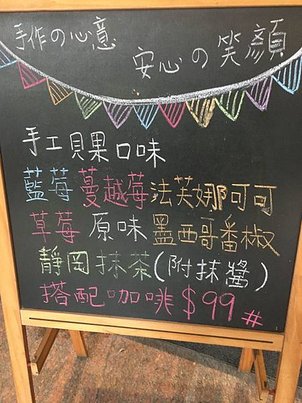 手作の心意
安心の笑顏
手工貝果口味
藍莓 蔓越莓 法芙娜可可
草莓 原味 墨西哥番椒
靜岡抹茶(附抹醬)
搭配咖啡$99#